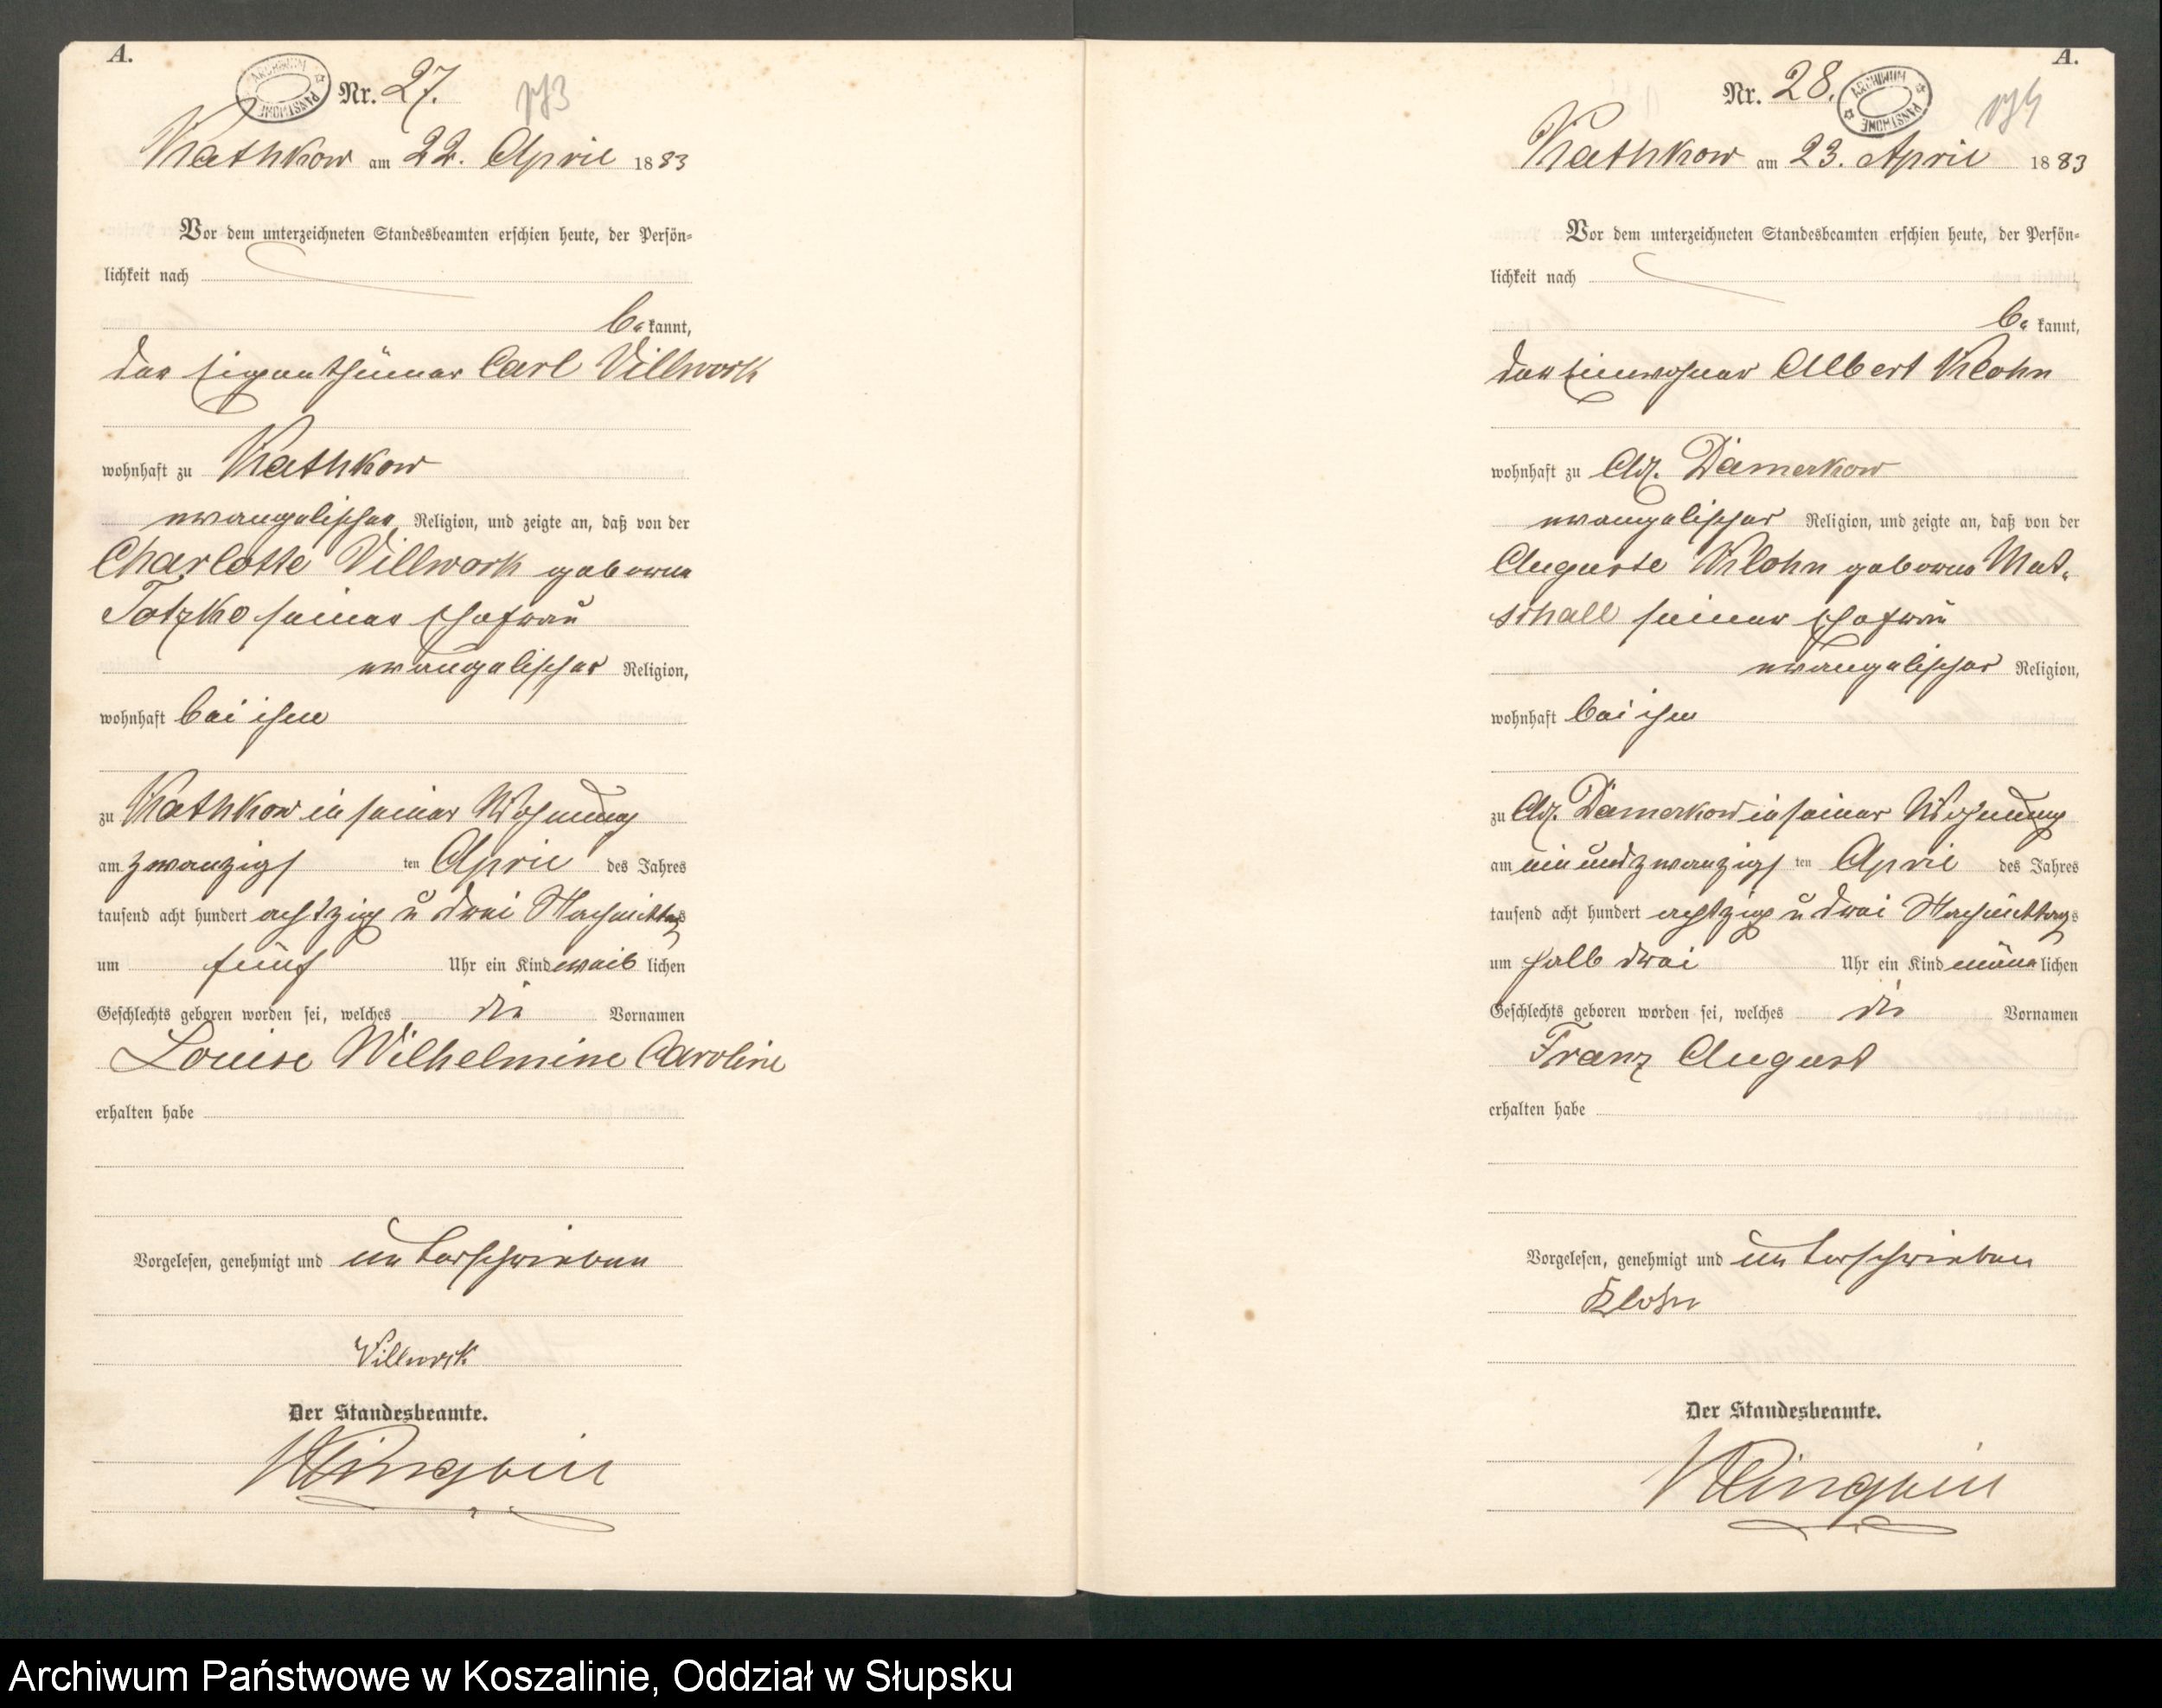 A.
ARCHIWUM PAŃSTWOWE
Nr. 27.
Kathkow am 22. April 1883
Vor dem unterzeichneten Standesbeamten erschien heute, der Persön-
lichkeit nach
be kannt,
der Eigenthümer Carl Villwock
wohnhaft zu Kathkow
evangelischer Religion, und zeigte an, daß von der
Charlotte Villwock geborene
Totzke seiner Ehefrau
evangelischer Religion,
wohnhaft bei ihm
zu Kathkow in seiner Wohnung
am zwanzigs ten April des Jahres
tausend acht hundert achtzig u drei Nachmittags
um fünf Uhr ein Kind weib lichen
Geschlechts geboren worden sei, welches die Vornamen
Louise Wilhelmine Caroline
erhalten habe
Vorgelesen, genehmigt und unterschrieben
Villwock
Der Standesbeamte.
A.
Nr. 28.
ARCHIWUM PAŃSTWOWE
Kathkow am 23. April 1883
Vor dem unterzeichneten Standesbeamten erschien heute, der Persön-
lichkeit nach
be kannt,
der Einwohner Albert Klohn
wohnhaft zu Adl. Damerkow
evangelischer Religion, und zeigte an, daß von der
Auguste Klohn geborene Mat-
schall seiner Ehefrau
evangelischer Religion,
wohnhaft bei ihm
zu Adl. Damerkow in seiner Wohnung
am einundzwanzigs ten April des Jahres
tausend acht hundert achtzig u drei Nachmittags
um halb drei Uhr ein Kind männ lichen
Geschlechts geboren worden sei, welches die Vornamen
Franz August
erhalten habe
Vorgelesen, genehmigt und unterschrieben
Klohn
Der Standesbeamte.
Archiwum Państwowe w Koszalinie, Oddział w Słupsku